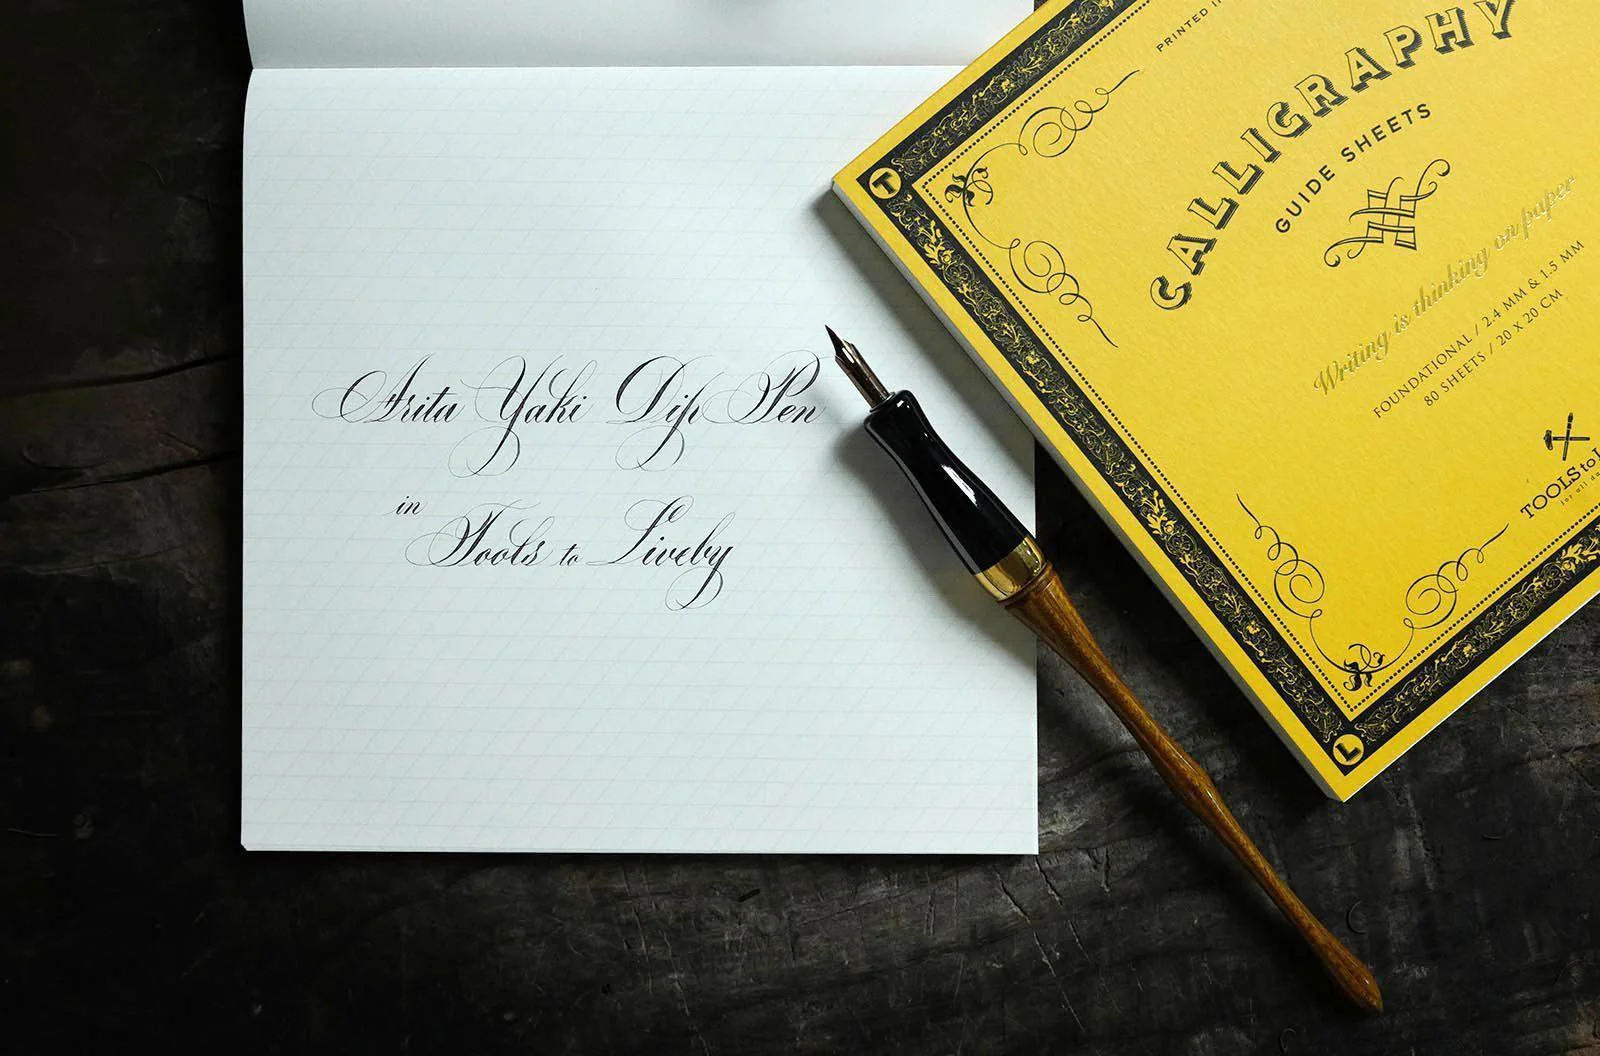 Arita Yaki Dip Pen
in
Tools to Liveby
PRINTED
CALLIGRAPHY
GUIDE SHEETS
Writing is thinking on paper
FOUNDATIONAL / 2.4 MM & 1.5 MM
80 SHEETS / 20 X 20 CM
TOOLS to
for all
T
L